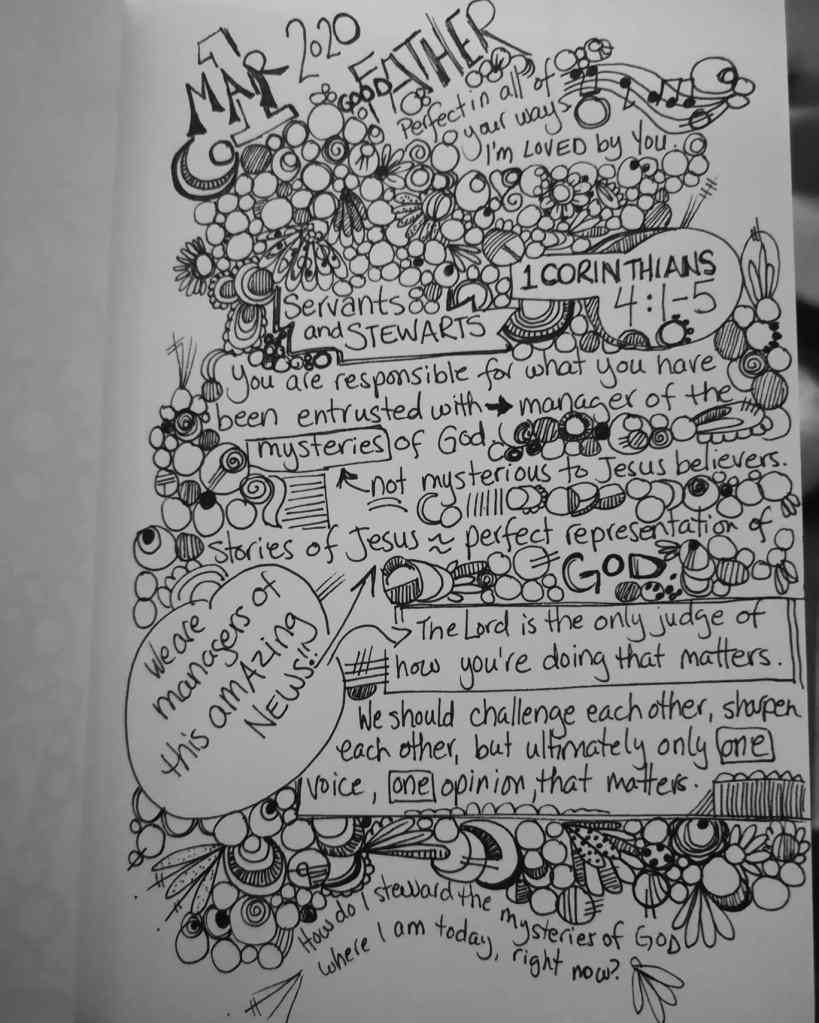 1 MAR 2020
GOOD FATHER
Perfect in all of
your ways
I'm LOVED by You.
1 CORINTHIANS
4:1-5
Servants
and STEWARTS
You are responsible for what you have
been entrusted with → manager of the
mysteries of God.
not mysterious to Jesus believers.
Stories of Jesus ≈ perfect representation of
GOD.
We are
managers of
this amAzing
NEWS!!
The Lord is the only judge of
how you're doing that matters.
We should challenge each other, sharpen
each other, but ultimately only one
voice, one opinion, that matters.
How do I steward the mysteries of GOD
where I am today, right now?